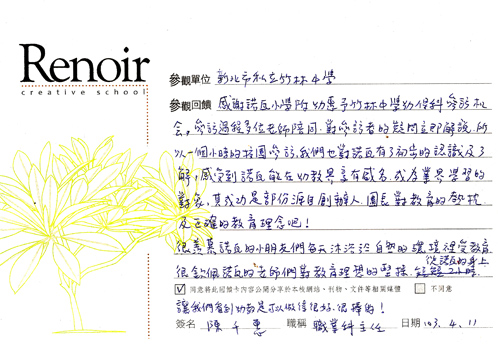 Renoir
creative school
參觀單位 新北市私立竹林中學
參觀回饋 感謝諾瓦小學附幼惠予竹林中學幼保科參訪机
會，參訪過程多位老師陪同，對參訪者的疑問立即解說，所
以一個小時的校園參訪，我們也對諾瓦有了初步的認識及了
解，感受到諾瓦能在幼教界享有盛名，成為業界學習的
對象，其成功是部份源自創辦人、園長對教育的執
及正確的教育理念吧！
很羨慕諾瓦的小朋友們每天沐浴於自然的環境裡受教育
很欽佩諾瓦的老師們對教育理想的堅持，從諾瓦的身上
同意將此回饋卡內容公開分享於本校網站、刊物、文件等相關媒體 不同意
讓我們看到幼教是可以做得很好、很棒的！
簽名 陳千惠 職稱 職業科主任 日期 103.4.11